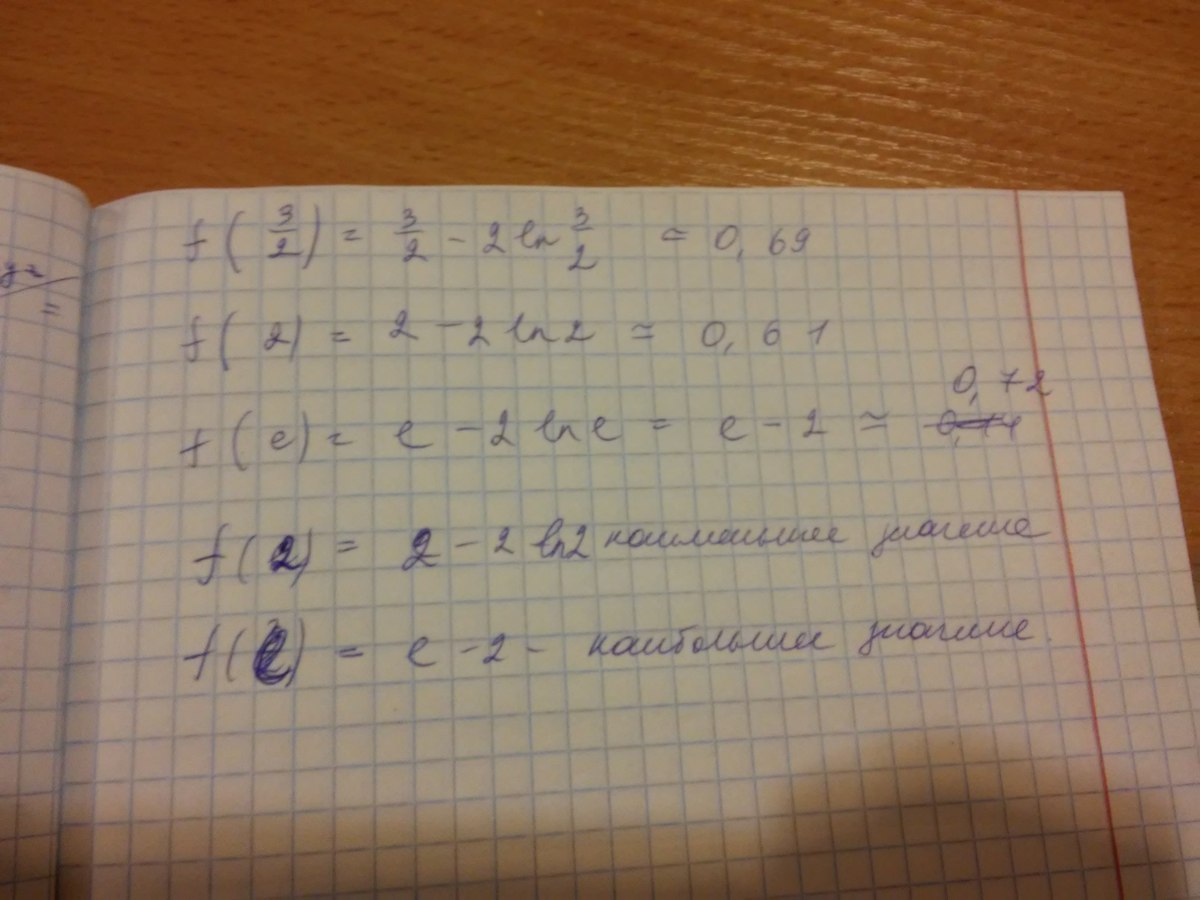 f(3/2) = 3/2 - 2 ln 3/2 ≃ 0,69
f(2) = 2 - 2 ln 2 ≃ 0,61
f(e) = e - 2 ln e = e - 2 ≃ 0,72
f(2) = 2 - 2 ln2 наименьшее значение
f(e) = e - 2 - наибольшее значение.